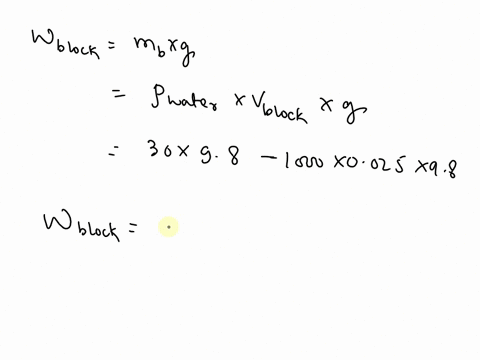 W block = mb x g
= ρ water x V block x g
= 30 x 9.8 - 1000 x 0.025 x 9.8
W block =